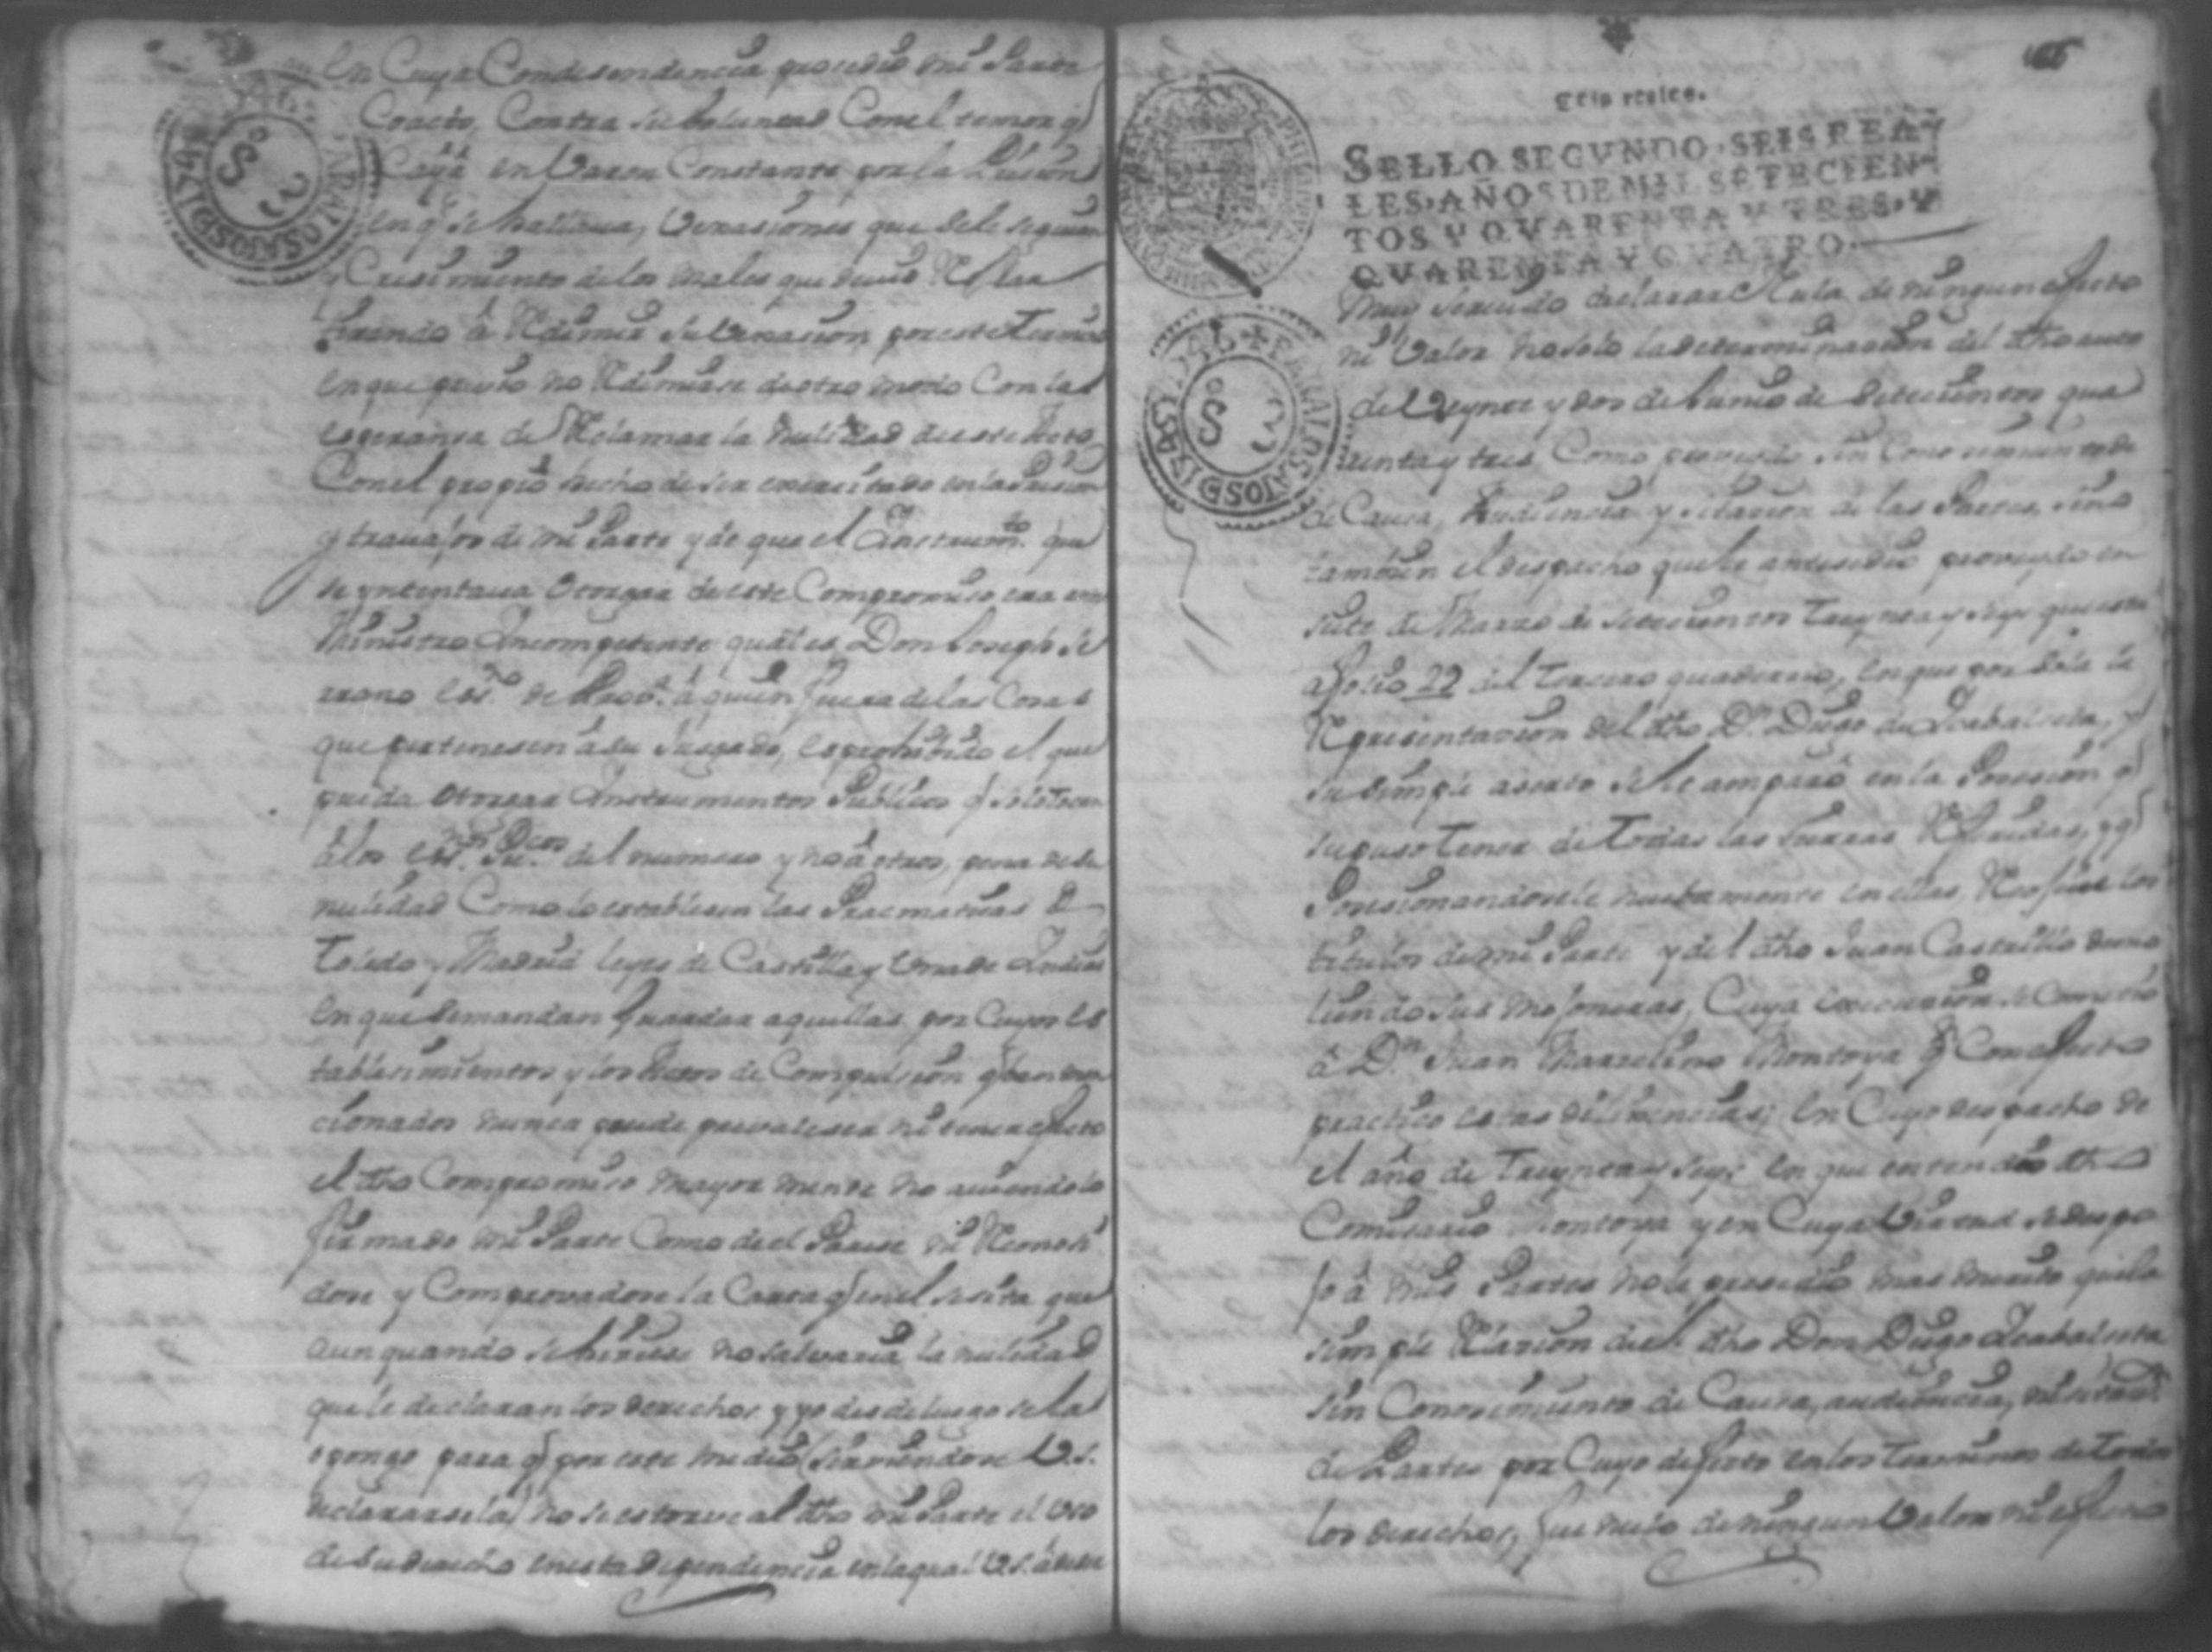 en Cuya Condesendencia prosedio mi Parte
Coacto, Contra su boluntad Con el temor q
Caye en Varon Constante por la Pricion
en q se hallaua, Vexasiones que sele seguian
y Cresimiento de los males que
tirando â Redimir su Vexasion por este termino
en que preuio no Redimirse de otro modo Con la
esperanza de Reclamar la nulidad de este Auto
Con el propio hecho de ser executado en la Pricion
y trauajos de mi Parte y de que el Instrumto. que
se yntentaua Otorgar de este Compromiso era
Ministro Incompetente qual es Don Joseph Se
rrano esno. de Prova. â quien fuera de las Cosas
que pertenesen â su Jusgado, es prohibido el que
pueda Otorgar Instrumentos Publicos q solo tocan
â los essnos. Pucos del numero y no â otros, pena de la
nulidad Como lo establesen las Pracmaticas de
Toledo y Madrid leyes de Castilla y Una de Indias
en que se mandan guardar aquellas por Cuyos es
tablesimientos y los Autos de Compulsion q ban men
cionados nunca puede prevaleser ni tener efecto
el dho Compromiso mayor mente no auiendolo
firmado mi Parte Como de el Parese ni Reconosi
dose y Comprovadose la Carta q en el se sita que
aun quando se hisiese no salvaria la nulidad
que le declaran los derechos y yo desde luego se la
opongo para q por este medio (Sirviendose V.S.
declararsela) no se estorve al dho mi Parte el Uso
de su derecho en esta Dependencia en la qual V.S. â de ser
Seis reales.
SELLO SEGVNDO, SEIS REA-
LES, AÑOS DE MIL SETECIEN-
TOS Y QVARENTA Y TRES, Y
QVARENTA Y QVATRO.
muy seruido declarar Nula de ningun efecto
ni Valor no solo la determinacion del dho auto
del Veynte y dos de Junio de Setecientos qua
renta y tres Como proveydo sin Conosimiento de
de Causa, Audiencia y sitacion de las Partes, sino
tambien el despacho que le antesedio proveydo en
siete de Marzo de Setecientos Treynta y seys que esta
a foxas 22 del tercero quaderno, en que por sola la
Representacion del dho Dn. Diego de Isabaleta, y
su simple aserto se le amparô en la Posesion q
supuso tener de todas las tierras Referidas, y q
Posesionandosele nuebamente en ellas, Recojiese los
titulos de mi Parte y del dho Juan Castrillo demo
liendo sus mojoneras, Cuya execusion se Cometio
â Dn. Juan Marselino Montoya q Con efecto
practico estas diligencias, en Cuyo despacho de
el año de Treynta y seys en que entendio dho
Comisario Montoya y en Cuya Virtud se despo
jo â mis Partes no le presedio mas merito que la
simple Rlacion de el dho Don Diego Isabaleta
sin Conosimiento de Causa, audiencia, ni sitacn.
de Partes por Cuyo defecto en los terminos de todos
los derechos, fue nulo de ningun Valor ni efecto